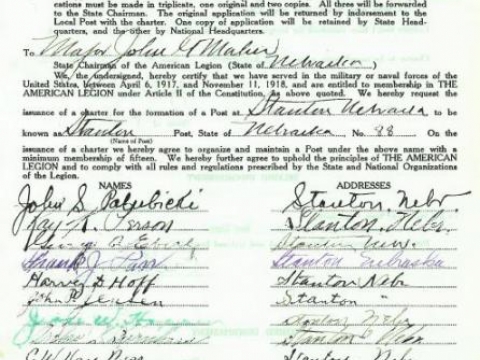 cations must be made in triplicate, one original and two copies. All three will be forwarded
to State Chairman. The original application will be returned by indorsement to the
Local Post with the charter. One copy of application will be retained by State Head-
quarters, and the other by National Headquarters.
To Major John G Maher
State Chairman of the American Legion (State of Nebraska)
We, the undersigned, hereby certify that we have served in the military or naval forces of the
United States, between April 6, 1917, and November 11, 1918, and are entitled to membership in
THE AMERICAN LEGION under Article II of the Constitution, as above quoted. We hereby request the
issuance of a charter for the formation of a Post at Stanton Nebraska to be
known as Stanton Post, State of Nebraska No. 88 On the
(Name of Post)
issuance of the charter we hereby agree to organize and maintain a Post under the above name with a
minimum membership of fifteen. We hereby further agree to uphold the principles of THE AMERICAN
LEGION and to comply with all rules and regulations prescribed by the State and National Organizations
of the Legion.
NAMES ADDRESSES
John S. Stanton, Nebr
Ray A. Person Stanton, Nebr.
Stanton Nebr.
Frank J. Stanton Nebraska
Harvey D Hoff Stanton Nebr
John P. Jensen Stanton "
John W. Stanton Nebr
Stanton Nebr
Stanton Nebr